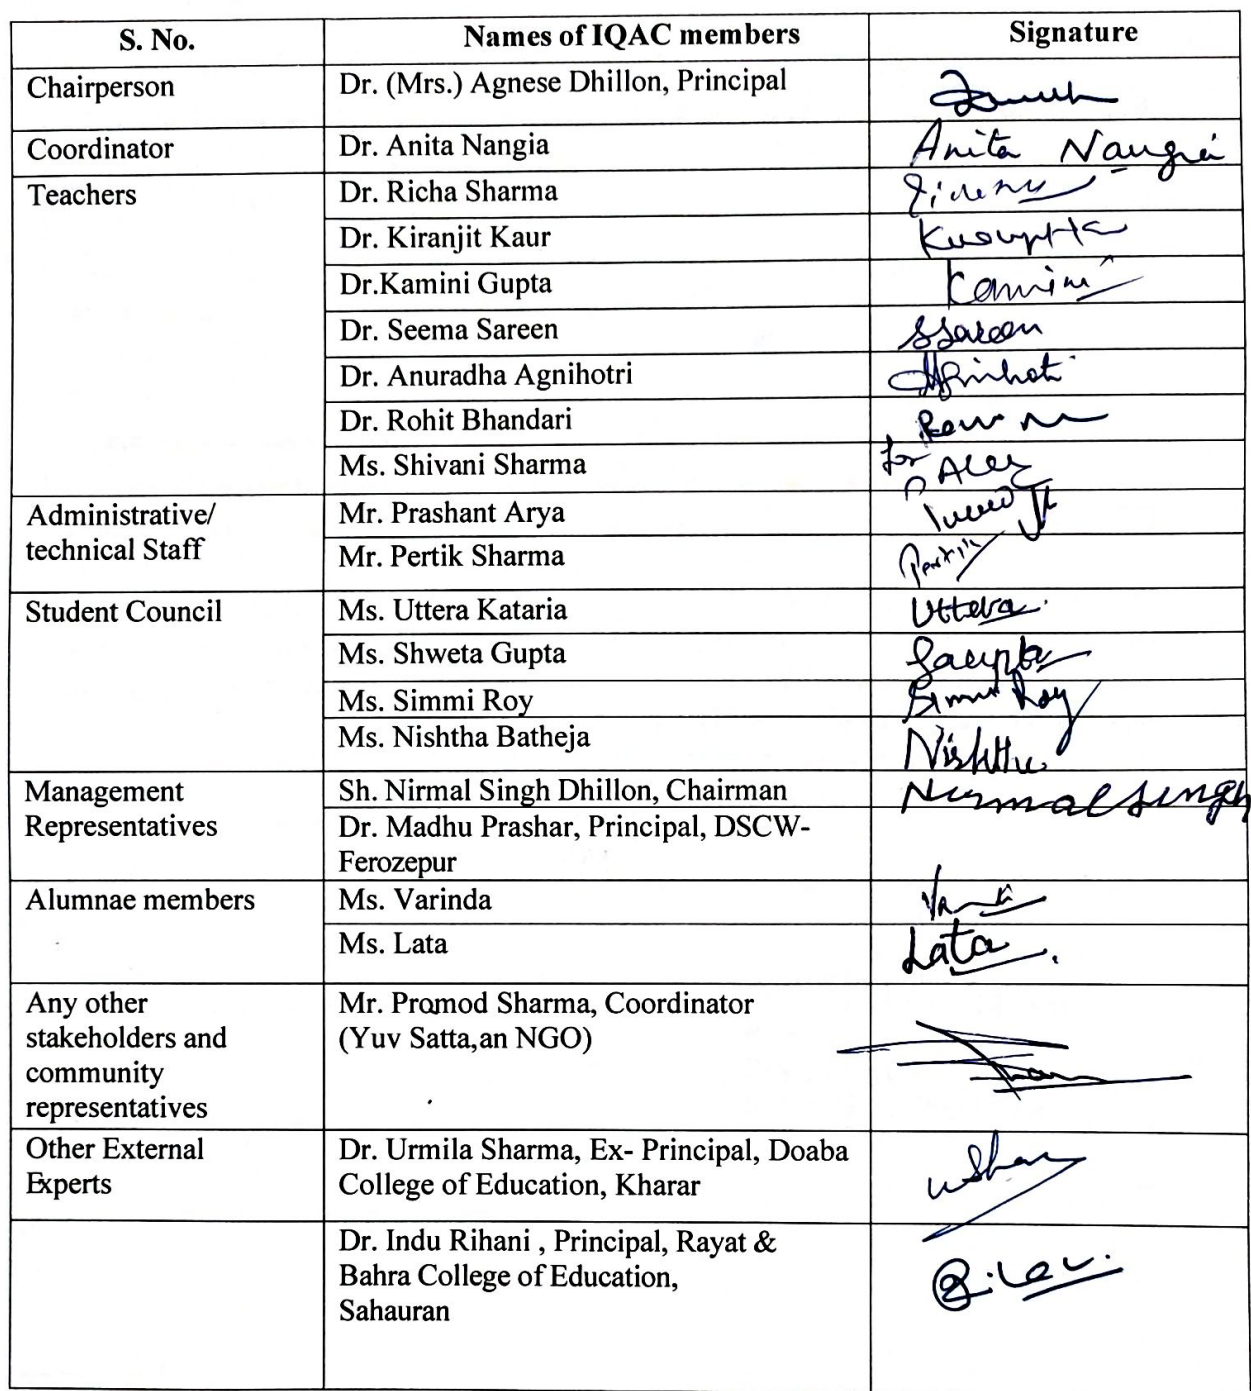 S. No. Names of IQAC members Signature
Chairperson Dr. (Mrs.) Agnese Dhillon, Principal
Coordinator Dr. Anita Nangia Anita Nangia
Teachers Dr. Richa Sharma
Dr. Kiranjit Kaur
Dr.Kamini Gupta Kamini
Dr. Seema Sareen SSareen
Dr. Anuradha Agnihotri Agnihotri
Dr. Rohit Bhandari
Ms. Shivani Sharma for
Administrative/
technical Staff
Mr. Prashant Arya
Mr. Pertik Sharma Pertik
Student Council Ms. Uttera Kataria Uttera
Ms. Shweta Gupta
Ms. Simmi Roy Simmi Roy
Ms. Nishtha Batheja Nishtha
Management
Representatives
Sh. Nirmal Singh Dhillon, Chairman Nirmal Singh
Dr. Madhu Prashar, Principal, DSCW-
Ferozepur
Alumnae members Ms. Varinda
Ms. Lata Lata
Any other
stakeholders and
community
representatives
Mr. Promod Sharma, Coordinator
(Yuv Satta,an NGO)
Other External
Experts
Dr. Urmila Sharma, Ex- Principal, Doaba
College of Education, Kharar
Dr. Indu Rihani , Principal, Rayat &
Bahra College of Education,
Sahauran